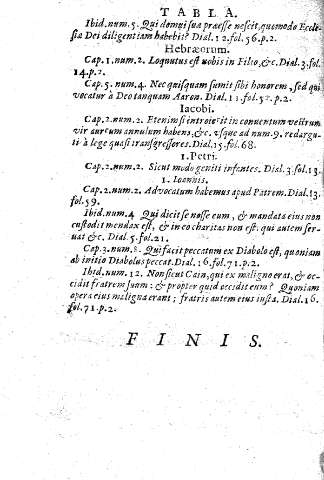 TABLA.
Ibid.num.5. Qui domui sua praesse nescit, quomodo Eccle-
sia Dei diligentiam habebit? Dial.12.fol.56.p.2.
Hebræorum.
Cap.1.num.2. Loqutus est nobis in Filio,&c.Dial.3.fol.
14.p.2.
Cap.5.num.4. Nec quisquam sumit sibi honorem, sed qui
vocatur à Deo tanquam Aaron. Dial.11.fol.52.p.2.
Iacobi.
Cap.2.num.2. Etenim si introierit in conuentum vestrum
vir aureum annulum habens,&c. vsque ad num.9. redargu-
ti à lege quasi transgressores. Dial.15.fol.68.
1.Petri.
Cap.2.num.2. Sicut modo geniti infantes. Dial.3.fol.13.
1. Ioannis.
Cap.2.num.2. Advocatum habemus apud Patrem. Dial.13.
fol.59.
Ibid.num.4 Qui dicit se nosse eum, & mandata eius non
custodit mendax est, & in eo charitas non est. qui autem ser-
uat &c. Dial.5.fol.21.
Cap.3.num.8. Qui facit peccatum ex Diabolo est, quoniam
ab initio Diabolus peccat. Dial.16.fol.71.p.2.
Ibid.num.12. Non sicut Cain, qui ex maligno erat, & oc-
cidit fratrem suum: & propter quid occidit eum? Quoniam
opera eius maligna erant; fratris autem eius iusta. Dial.16.
fol.71.p.2.
FINIS.